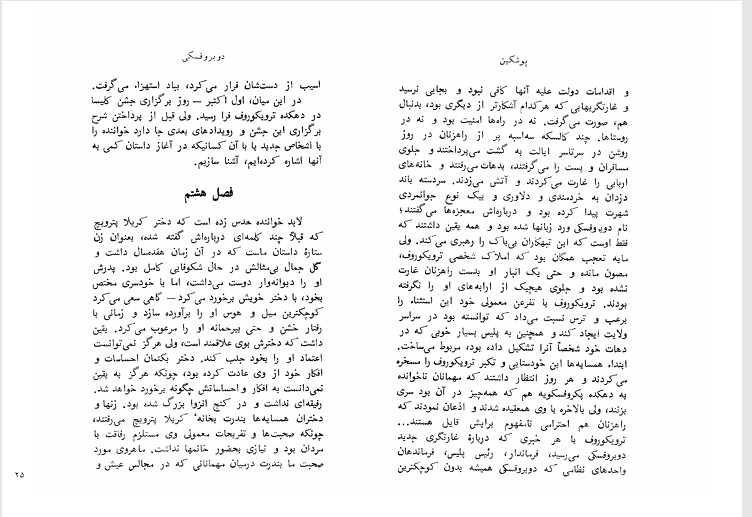 پوشکین
و اقدامات دولت علیه آنها کافی نبود و بجایی نرسید
و غارتگریهایی که هرکدام آشکارتر از دیگری بود، بدنبال
هم، صورت می‌گرفت. نه در راه‌ها امنیت بود و نه در
روستاها. چند کالسکه سه‌اسبه پر از راهزنان در روز
روشن در سرتاسر ایالت به گشت می‌پرداختند و جلوی
مسافران و پست را می‌گرفتند، بدهات می‌رفتند و خانه‌های
اربابی را غارت می‌کردند و آتش می‌زدند. سردسته باند
دزدان به خردمندی و دلاوری و بیک نوع جوانمردی
شهرت پیدا کرده بود و درباره‌اش معجزه‌ها می‌گفتند؛
نام دوبروفسکی ورد زبانها شده بود و همه یقین داشتند که
فقط اوست که این تبهکاران بی‌باک را رهبری می‌کند. ولی
مایه تعجب همگان بود که املاک شخصی ترویکوروف،
مصون مانده و حتی یک انبار او بدست راهزنان غارت
نشده بود و جلوی هیچیک از ارابه‌های او را نگرفته
بودند. ترویکوروف با تفرعن معمولی خود این استثناء را
برعب و ترس نسبت می‌داد که توانسته بود در سراسر
ولایت ایجاد کند و همچنین به پلیس بسیار خوبی که در
دهات خود شخصاً آنرا تشکیل داده بود، مربوط می‌ساخت.
ابتداء همسایه‌ها این خودستایی و تکبر ترویکوروف را مسخره
می‌کردند و هر روز انتظار داشتند که مهمانان ناخوانده
به دهکده پکروفسکویه هم که همه‌چیز در آن بود سری
بزنند، ولی بالاخره با وی همعقیده شدند و اذعان نمودند که
راهزنان هم احترامی نامفهوم برایش قایل هستند...
ترویکوروف با هر خبری که دربارهٔ غارتگری جدید
دوبروفسکی می‌رسید، فرماندار، رئیس پلیس، فرماندهان
واحدهای نظامی که دوبروفسکی همیشه بدون کوچکترین
دوبروفسکی
آسیب از دست‌شان فرار می‌کرد، بباد استهزاء می‌گرفت.
در این میان، اول اکتبر — روز برگزاری جشن کلیسا
در دهکده ترویکوروف فرا رسید. ولی قبل از پرداختن شرح
برگزاری این جشن و رویدادهای بعدی جا دارد خواننده را
با اشخاص جدید یا با آن کسانیکه در آغاز داستان کمی به
آنها اشاره کرده‌ایم، آشنا سازیم.
فصل هشتم
لابد خواننده حدس زده است که دختر کریلا پترویچ
که قبلاً چند کلمه‌ای درباره‌اش گفته شده، بعنوان زن
ستارهٔ داستان ماست که در آن زمان هفده‌سال داشت و
گل جمال بی‌مثالش در حال شکوفایی کامل بود. پدرش
او را دیوانه‌وار دوست می‌داشت، اما با خودسری مختص
بخود، با دختر خویش برخورد می‌کرد — گاهی سعی می‌کرد
کوچکترین میل و هوس او را برآورده سازد و زمانی با
رفتار خشن و حتی بیرحمانه او را مرعوب می‌کرد. یقین
داشت که دخترش بوی علاقمند است، ولی هرگز نمی‌توانست
اعتماد او را بخود جلب کند. دختر بکتمان احساسات و
افکار خود از وی عادت کرده بود، چونکه هرگز به یقین
نمی‌دانست به افکار و احساساتش چگونه برخورد خواهد شد.
رفیقه‌ای نداشت و در کنج انزوا بزرگ شده بود. زنها و
دختران همسایه‌ها بندرت بخانهٔ کریلا پترویچ می‌رفتند،
چونکه صحبت‌ها و تفریحات معمولی وی مستلزم رفاقت با
مردان بود و نیازی بحضور خانمها نداشت. ماهروی مورد
صحبت ما بندرت درمیان مهمانانی که در مجالس عیش و
۲۵